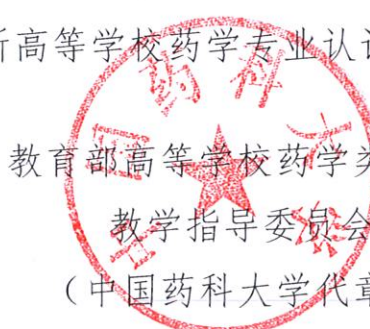 新高等学校药学专业认证
教育部高等学校药学类
教学指导委员会
（中国药科大学代章
中国药科大学